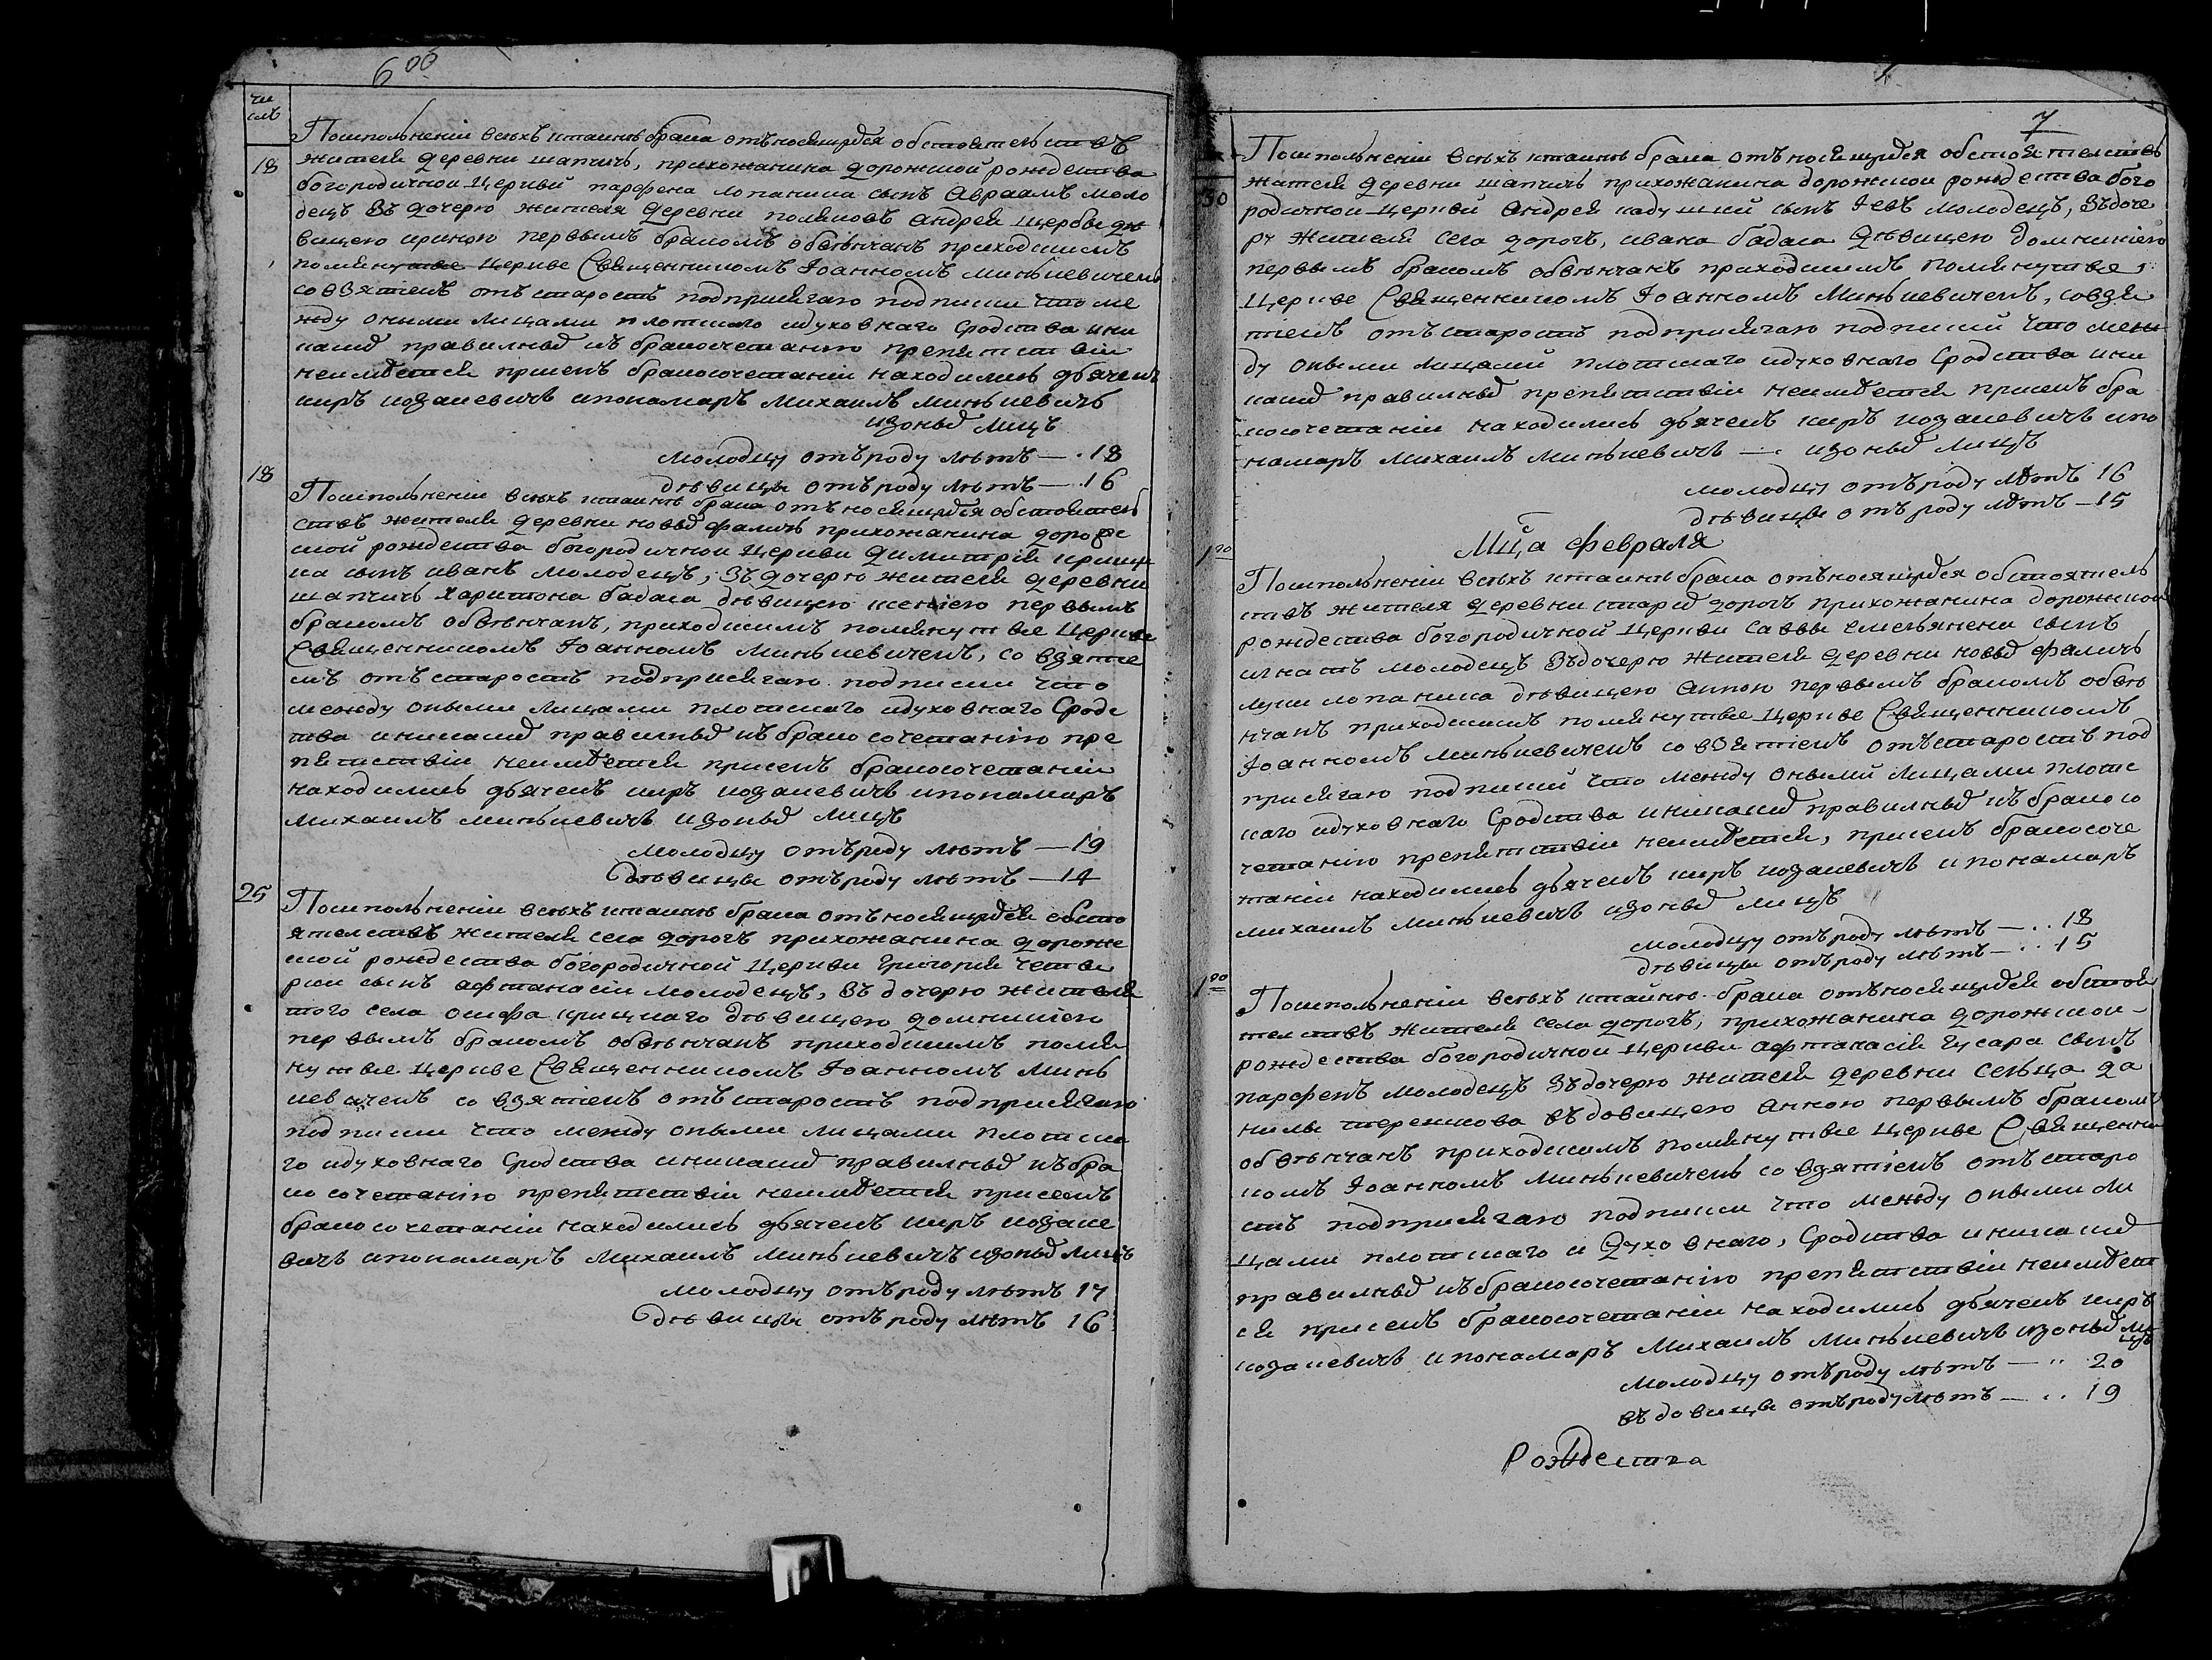 6 00
чи
слъ
18
Поисполненіи всѣхъ ктаинѣ брака отъносящихся обстоятельствъ
жителя деревни шапчичь, прихожанина дорожской рождества
богородичной церкви парфена лопаника сынъ Авраамъ моло
децъ въ дочерю жителя деревни поляковъ андрея щербы дѣ
вицею ириною первымъ бракомъ обвѣнчанъ приходскимъ
помянутое церкве Священникомъ Іоанномъ Минкевичемъ
совзятіемъ отъ старостъ подприсягаю подписки что ме
жду оными лицами плотского идуховнаго Сродства ини
какихъ правилныхъ къ бракосочетанію препятствіи
неимѣется присемъ бракосочетаніи находились дьячекъ
киръ козакевичъ ипонамаръ Михаилъ минкевичъ
изоныхъ лицъ
молодцу отъроду лѣтъ — . 18
дѣвицы отъроду лѣтъ — . 16
18
Поисполненіи всѣхъ ктаинѣ брака отъносящихся обстоятель
ствъ жителя деревни новыхъ фаличь прихожанина дорож
ской рождества богородичной церкви димитрія криц
ка сынъ иванъ молодецъ, въ дочерю жителя деревни
шапчичь харитона бадака дѣвицею ксеніею первымъ
бракомъ обвѣнчанъ, приходскимъ помянутое церкве
Священникомъ Іоанномъ минкевичемъ, со взятіе
мъ отъ старостъ подприсягаю подписки что
между оными лицами плотскаго идуховнаго Сродс
тва иникакихъ правилныхъ къ бракосочетанію пре
пятствіи неимѣется присемъ бракосочетаніи
находились дьячекъ киръ козакевичъ ипонамаръ
михаилъ минкевичъ изоныхъ лицъ
молодцу отъроду лѣтъ — 19
дѣвицы отъроду лѣтъ — 14
25
Поисполненіи всѣхъ ктаинѣ брака отъносящихся обсто
ятелствъ жителя села дорогъ прихожанина дороже
ской рождества богородичной церкви григорія четве
рки сынъ афтанасіи молодецъ, въ дочерю жителя
того села осифа крицкаго дѣвицею домникіею
первымъ бракомъ обвѣнчанъ приходскимъ помя
нутое церкве Священникомъ Іоанномъ Минь
кевичемъ со взятіемъ отъстаростъ подприсягаю
подписки что между оными лицами плотска
го идуховнаго Сродства иникакихъ правилныхъ къбра
косочетанію препятствіи неимѣется присемъ
бракосочетаніи находились дьячекъ киръ козаке
вичъ ипонамаръ Михаилъ минкевичъ изоныхъ лицъ
молодцу отъроду лѣтъ 17
дѣвицы отъроду лѣтъ 16
7
30
Поисполненіи всѣхъ ктаинѣ брака отъносящихся обстоятелствъ
жителя деревни шапчичь прихожанина дорожской рождества бого
родичной церкви андрея кадушки сынъ Іевъ молодецъ, въдоче
ру жителя села дорогъ, ивана бадака дѣвицею домникіею
первымъ бракомъ обвѣнчанъ приходскимъ помянутое
церкве Священникомъ Іоанномъ Минкевичемъ, совзя
тіемъ отъстаростъ подприсягаю подписки что меж
ду оными лицами плотскаго идуховнаго Сродства ини
какихъ правилныхъ препятствіи неимѣется присемъ бра
косочетаніи находились дьячекъ киръ козакевичъ ипо
намаръ Михаилъ Минкевичъ — . изоныхъ лицъ
молодцу отъроду лѣтъ 16
дѣвицы отъроду лѣтъ — 15
Мца февраля
1го
Поисполненіи всѣхъ ктаинѣ брака отъносящихся обстоятель
ствъ жителя деревни старихъ дорогъ прихожанина дорожской
рождества богородичной церкви саввы емельянени сынъ
игнатъ молодецъ въдочерю жителя деревни новыхъ фаличь
луки лопаника дѣвицею анною первымъ бракомъ обвѣ
нчанъ приходскимъ помянутое церкве Священникомъ
Іоанномъ минкевичемъ со взятіемъ отъстаростъ под
присягаю подписки что между оными лицами плотс
каго идуховнаго Сродства иникакихъ правилныхъ къ бракосо
четанію препятствіи неимѣется, присемъ бракосоче
таніи находились дьячекъ киръ козакевичъ и понамаръ
михаилъ минкевичъ изоныхъ лицъ
молодцу отъроду лѣтъ — . . 18
дѣвицы отъроду лѣтъ — . . 15
1го
Поисполненіи всѣхъ ктайнѣ брака отъносящихся обстоя
телствъ жителя села дорогъ, прихожанина дорожской
рождества богородичной церкви афтанасія гусара сынъ
парфенъ молодецъ въдочерю жителя деревни сельца да
нилы терешкова въдовицею анною первымъ бракомъ
обвѣнчанъ приходскимъ помянутое церкве Священни
комъ Іоанномъ Минкевичемъ со взятіемъ отъстаро
стъ подприсягаю подписки что между оными ли
цами плотскаго и духовнаго, Сродства и никакихъ
правилныхъ къбракосочетанію препятствіи неимѣет
ся присемъ бракосочетаніи находились дьячекъ киръ
козакевичъ ипонамаръ Михаилъ Минкевичъ изоныхъ лицъ
молодцу отъроду лѣтъ — . . 20
въдовицы отъроду лѣтъ — . . 19
Рождества